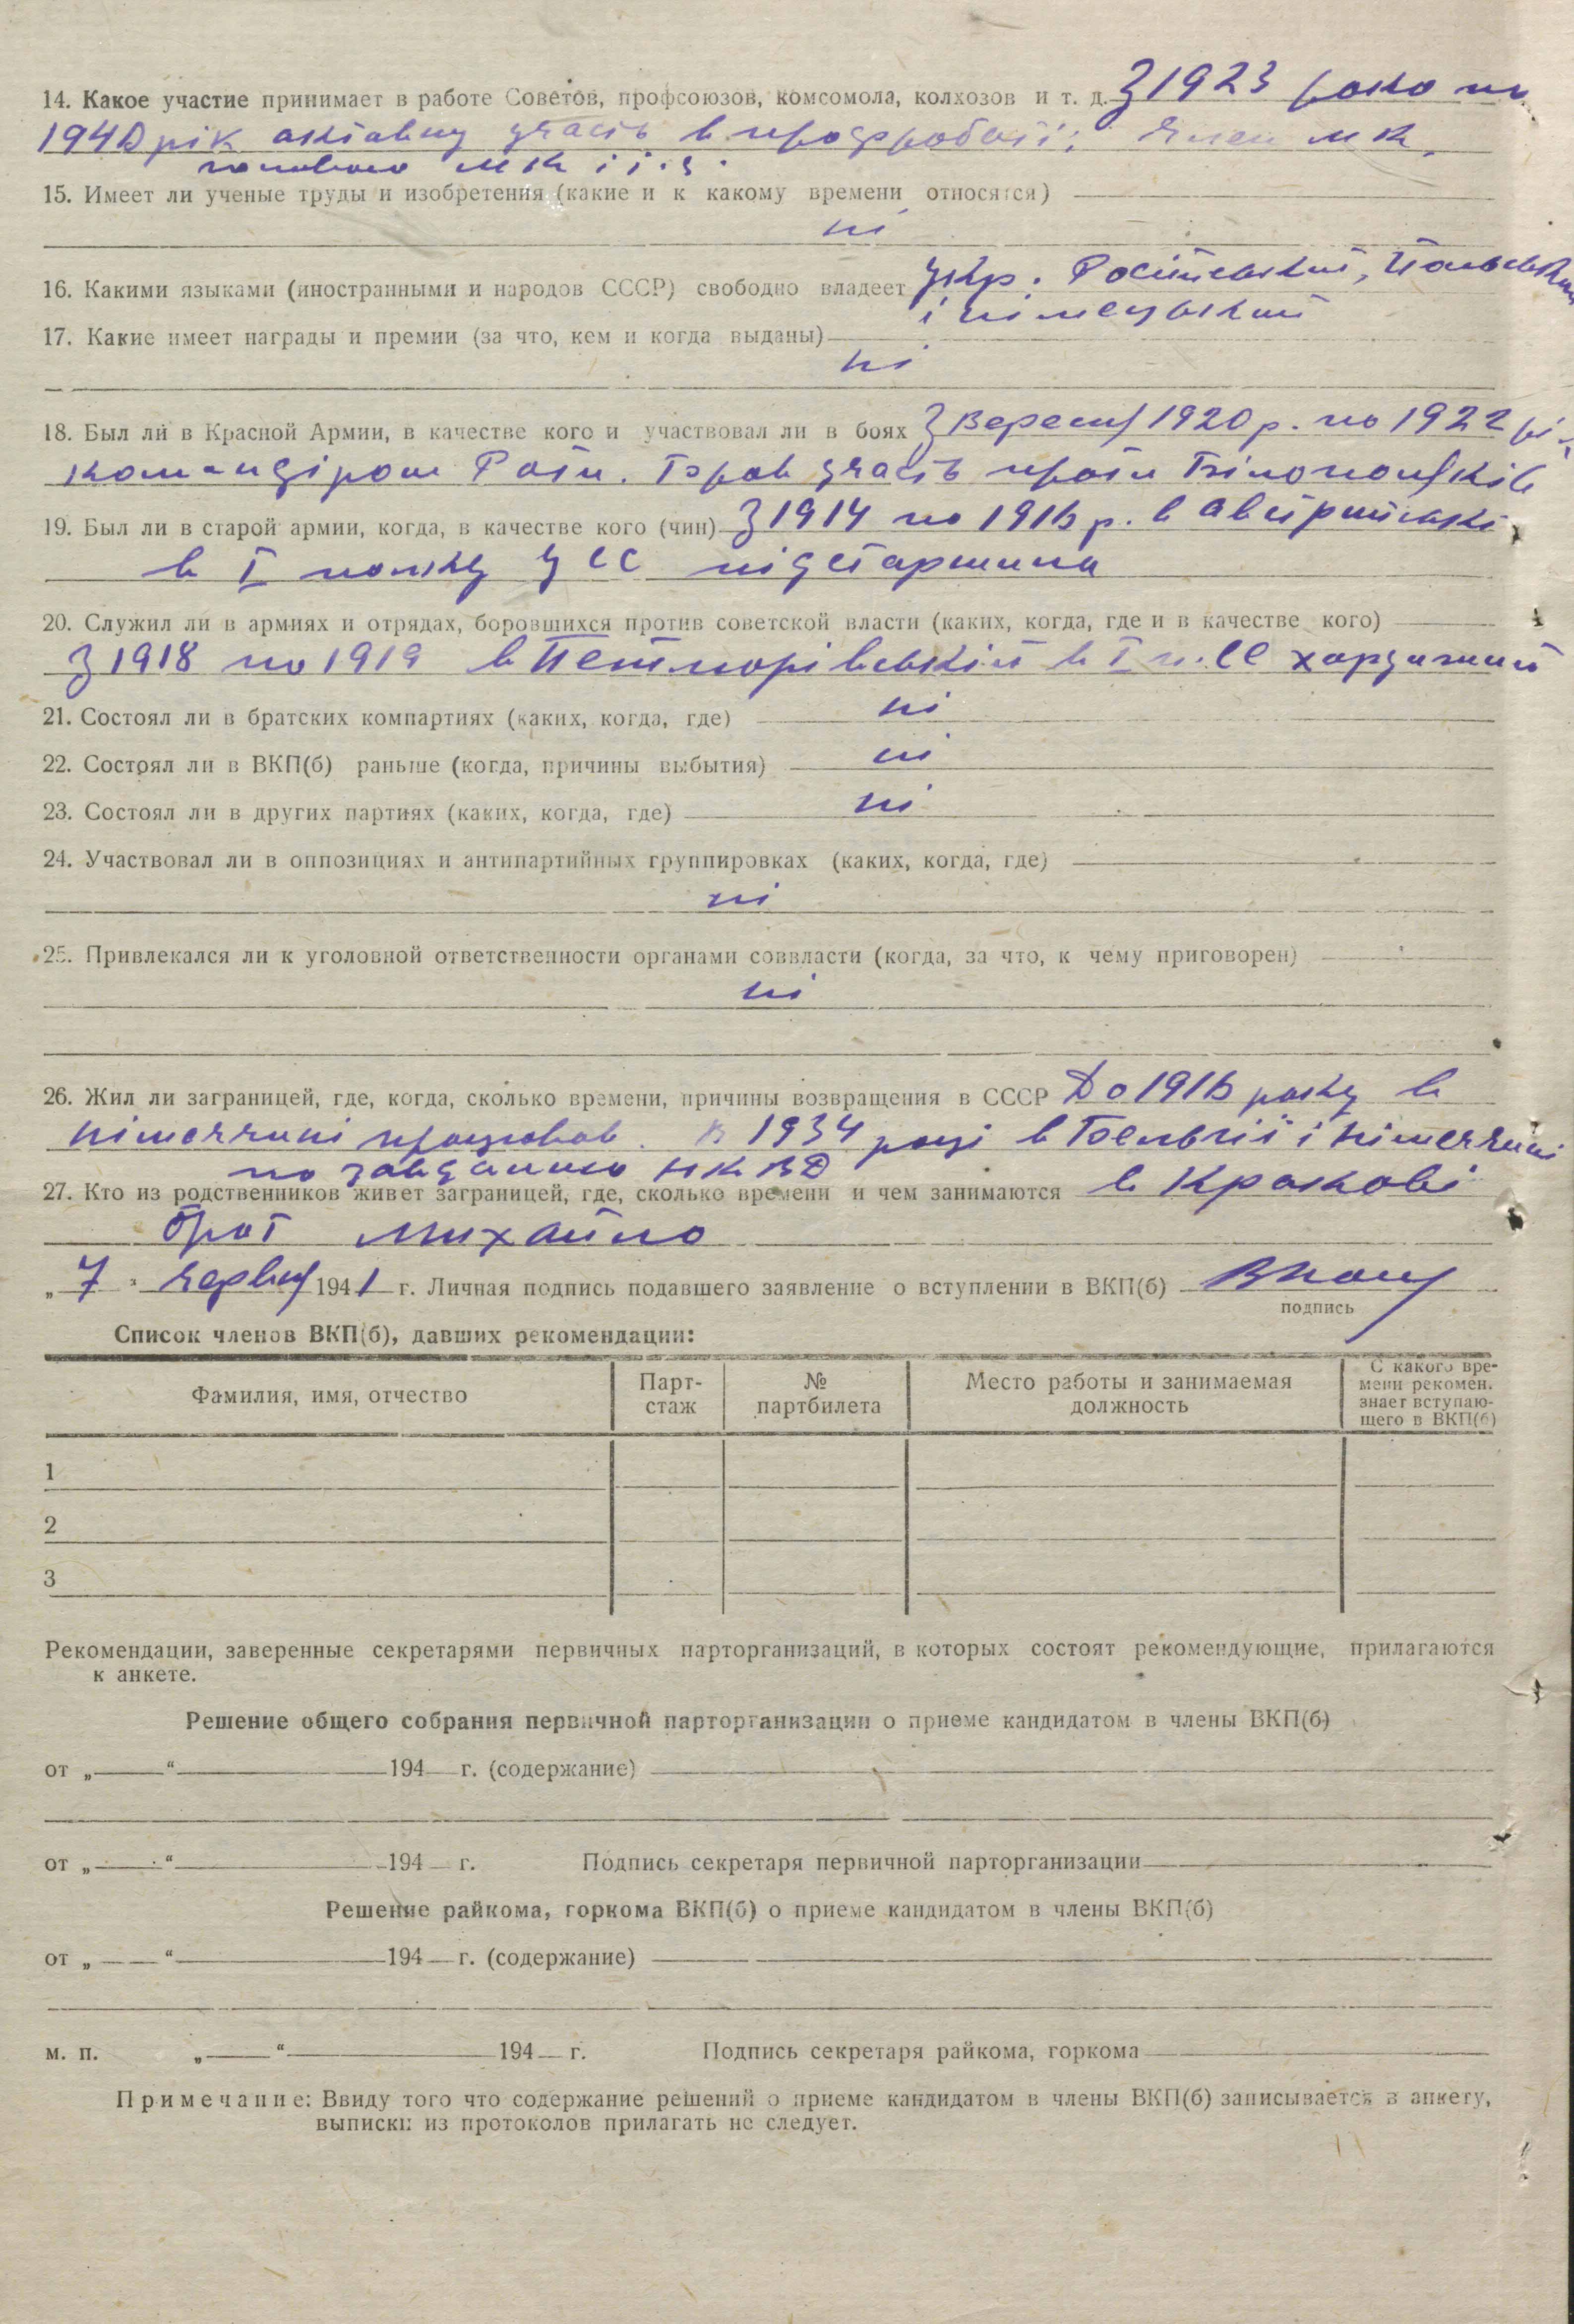 14. Какое участие принимает в работе Советов, профсоюзов, комсомола, колхозов и т. д. З 1923 рока по
1940 рік активну участь в профроботі: член МК,
головою МК і і. з.
15. Имеет ли ученые труды и изобретения (какие и к какому времени относятся)
ні
16. Какими языками (иностранными и народов СССР) свободно владеет Укр. Російський, Польський
і німецький
17. Какие имеет награды и премии (за что, кем и когда выданы)
ні
18. Был ли в Красной Армии, в качестве кого и участвовал ли в боях З Вересня 1920 р. по 1922 рік
командіром Роти. Брав участь проти Білополяків
19. Был ли в старой армии, когда, в качестве кого (чин) З 1914 по 1916 р. в Австрийські
в I полку УСС підстаршина
20. Служил ли в армиях и отрядах, боровшихся против советской власти (каких, когда, где и в качестве кого)
З 1918 по 1919 в Петлюрівській в I п. СС хорунжий
21. Состоял ли в братских компартиях (каких, когда, где) ні
22. Состоял ли в ВКП(б) раньше (когда, причины выбытия) ні
23. Состоял ли в других партиях (каких, когда, где) ні
24. Участвовал ли в оппозициях и антипартийных группировках (каких, когда, где)
ні
25. Привлекался ли к уголовной ответственности органами соввласти (когда, за что, к чему приговорен)
ні
26. Жил ли заграницей, где, когда, сколько времени, причины возвращения в СССР До 1916 року в
німеччині працював. В 1934 році в Бельгії і німеччині
по завданню НКВД
27. Кто из родственников живет заграницей, где, сколько времени и чем занимаются в Кракові
брат Михайло
„7“ червня 1941 г. Личная подпись подавшего заявление о вступлении в ВКП(б)
подпись
Список членов ВКП(б), давших рекомендации:
Фамилия, имя, отчество Парт-стаж № партбилета Место работы и занимаемая должность С какого вре-мени рекомен. знает вступаю-щего в ВКП(б)
1
2
3
Рекомендации, заверенные секретарями первичных парторганизаций, в которых состоят рекомендующие, прилагаются
к анкете.
Решение общего собрания первичной парторганизации о приеме кандидатом в члены ВКП(б)
от „ “ 194 г. (содержание)
от „ “ 194 г. Подпись секретаря первичной парторганизации
Решение райкома, горкома ВКП(б) о приеме кандидатом в члены ВКП(б)
от „ “ 194 г. (содержание)
м. п. „ “ 194 г. Подпись секретаря райкома, горкома
Примечание: Ввиду того что содержание решений о приеме кандидатом в члены ВКП(б) записывается в анкету,
выписки из протоколов прилагать не следует.